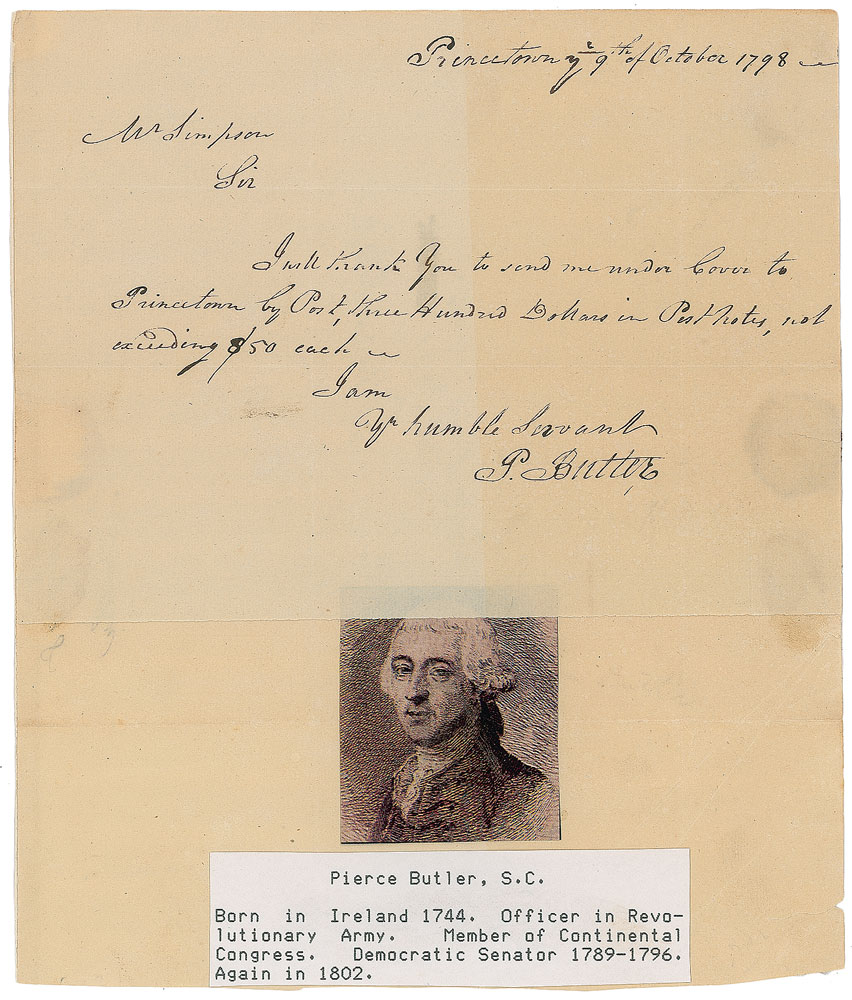 Princetown yᵉ 9th of October 1798
Mr Simpson
Sir
I will thank You to send me under Cover to
Princetown by Post, three Hundred Dollars in Post notes, not
exceeding $50 each
I am
Yr humble Servant
P. Butler
Pierce Butler, S.C.
Born in Ireland 1744. Officer in Revo-
lutionary Army. Member of Continental
Congress. Democratic Senator 1789-1796.
Again in 1802.